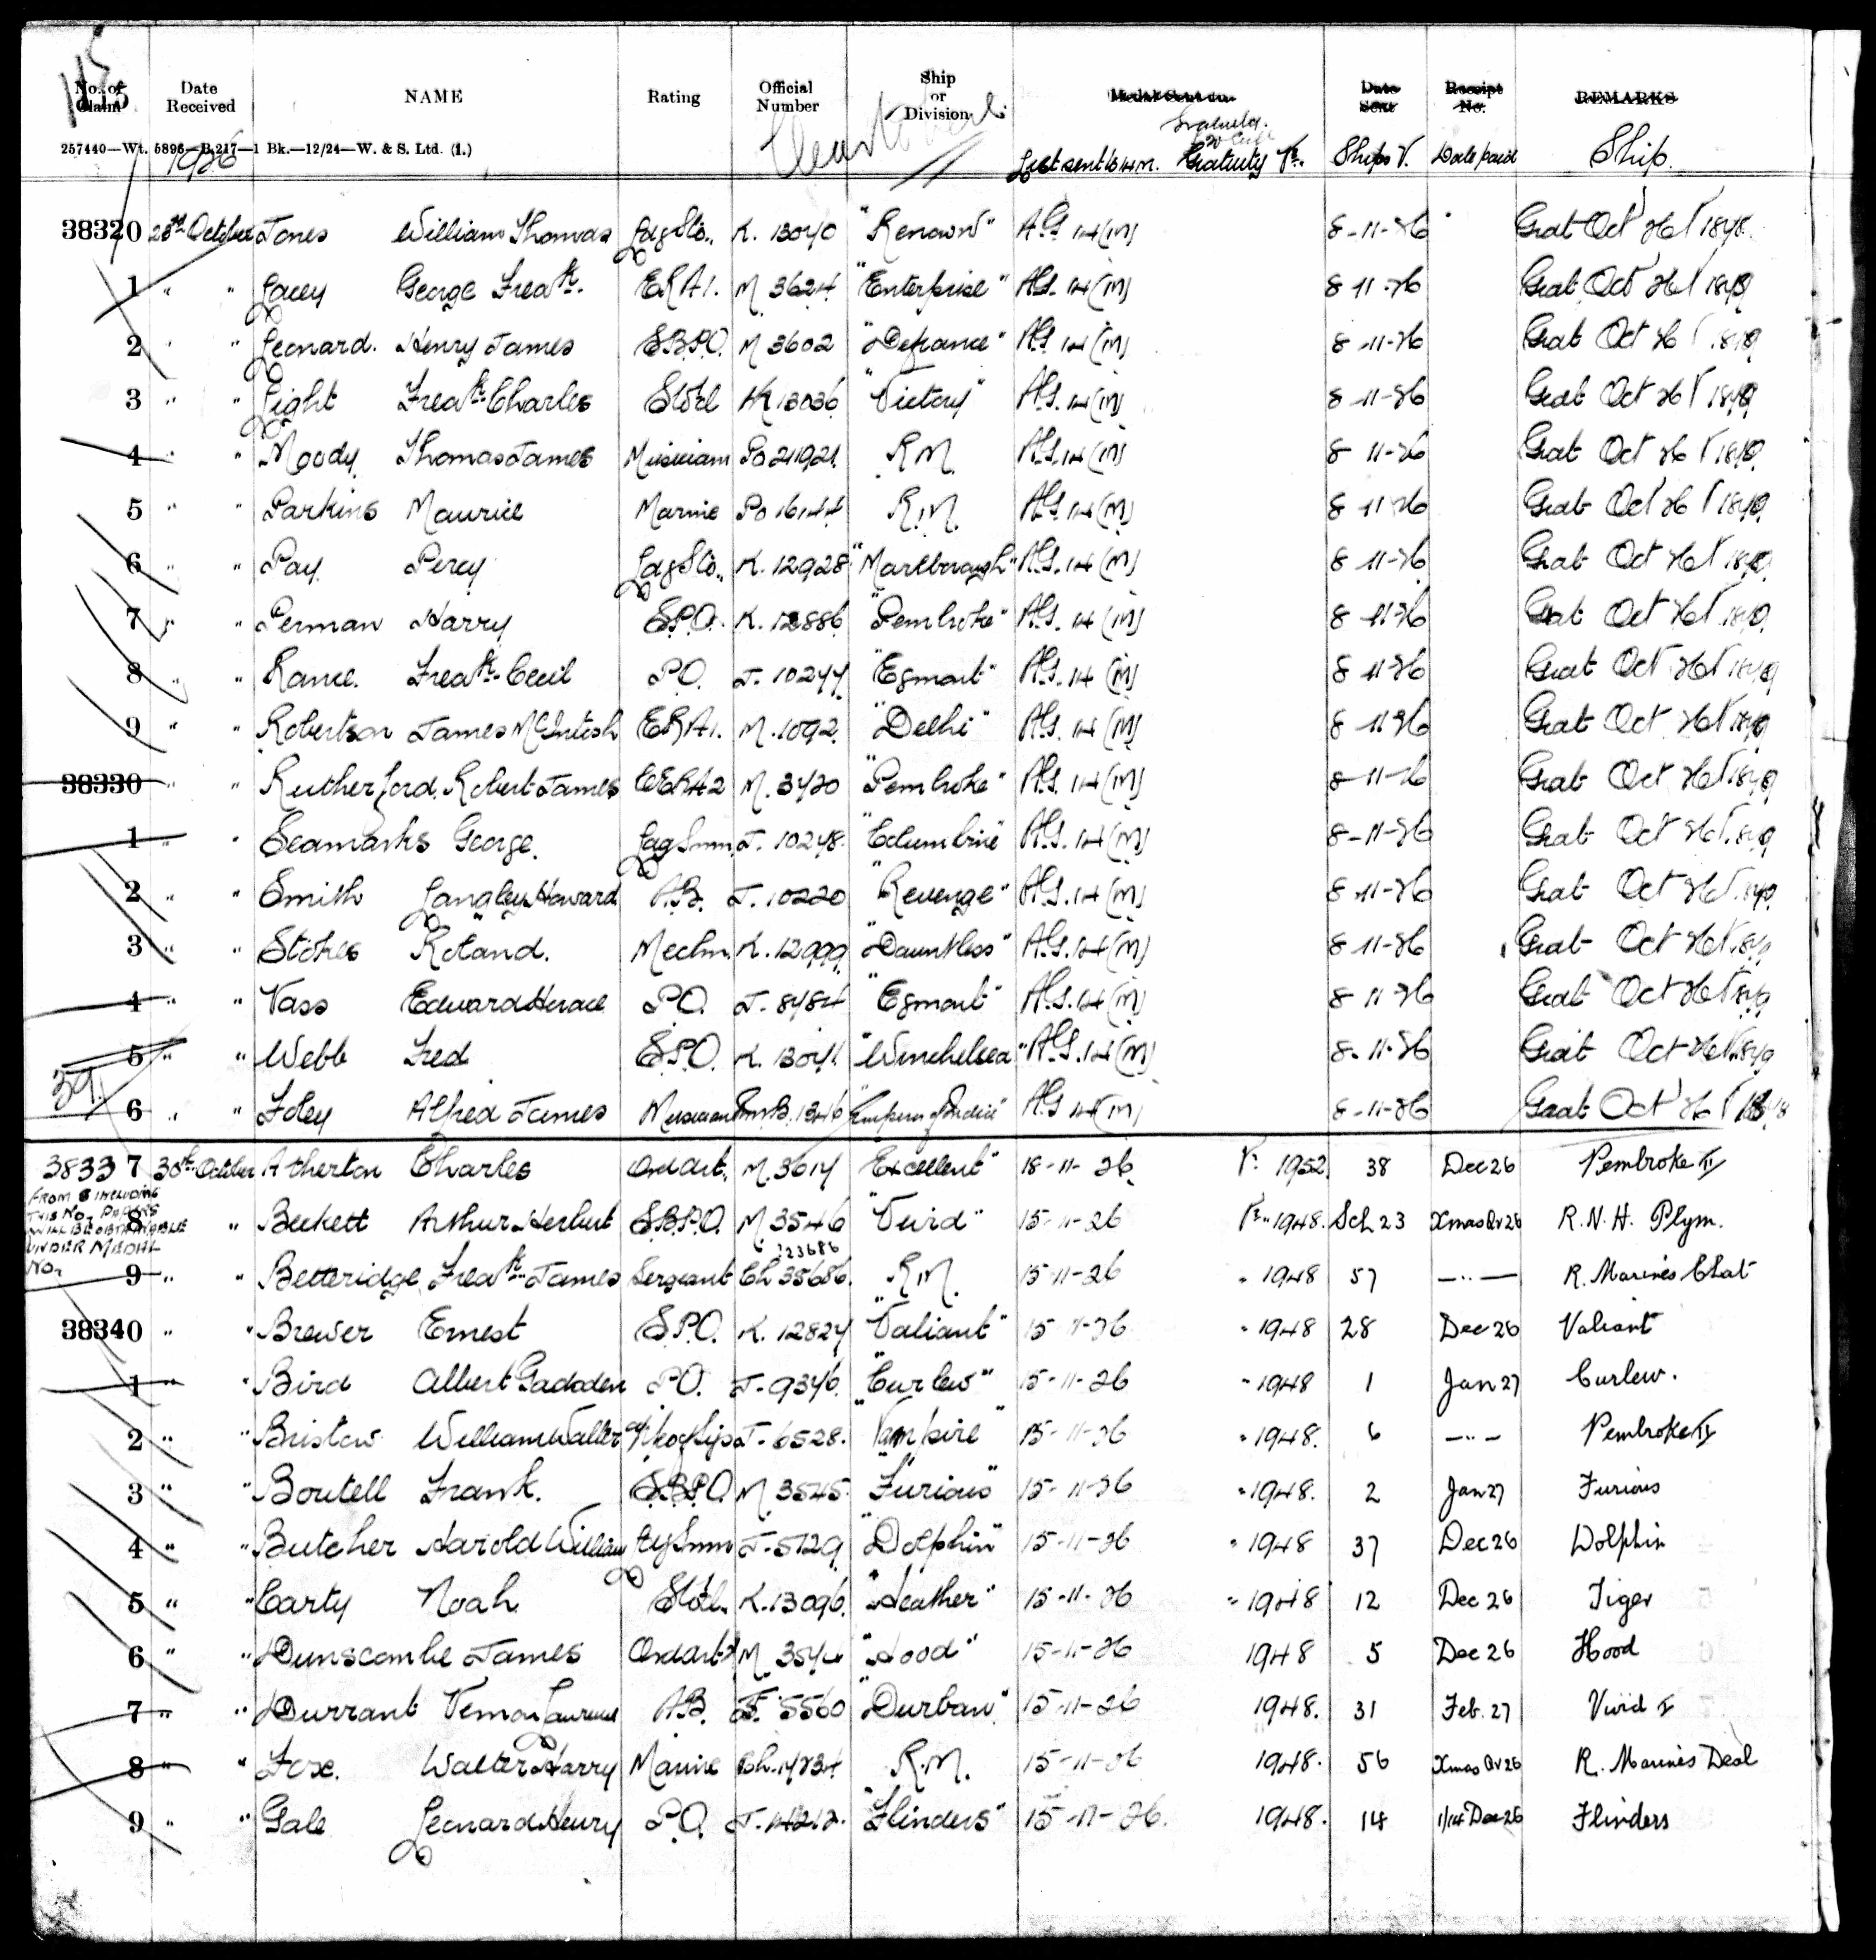 115
No. of Claim Date Received NAME Rating Official Number Ship or Division Medal Sent on Date Sent Receipt No. REMARKS
257440—Wt. 5896—B.217—1 Bk.—12/24—W. & S. Ltd. (1.)
1926 List sent to H.M. Gratuity Vr. Ships V. Date paid Ship.
38320 28th October Jones William Thomas Ldg Sto. K. 13040 "Renown" A.G. 14(M) 8-11-26 Grat Oct 26 V 1848
1 " " Lacey George Fredk. ERA1. M 3624 "Enterprise" A.G. 14(M) 8 11-26 Grat Oct 26 V 1848
2 " " Leonard. Henry James S.B.P.O. M 3602 "Defiance" A.G. 14(M) 8-11-26 Grat Oct 26 V 1848
3 " " Light Fredk. Charles Sto.1 K 13036 "Victory" A.G. 14(M) 8-11-26 Grat Oct 26 V 1848
4 " " Moody Thomas James Musician Po 211921 R.M. A.G. 14(M) 8 11-26 Grat Oct 26 V 1848
5 " " Parkins Maurice Marine Po 16144 R.M. A.G. 14(M) 8 11 26 Grat Oct 26 V 1848
6 " " Pay Percy Ldg Sto. K. 12928 "Marlborough" A.G. 14(M) 8 11-26 Grat Oct 26 V 1848
7 " " Perman Harry S.P.O. K. 12886 "Pembroke" A.G. 14(M) 8 11 26 Grat Oct 26 V 1848
8 " " Rance. Fredk. Cecil P.O. J. 10244 "Egmont" A.G. 14(M) 8 11 26 Grat Oct 26 V 1848
9 " " Robertson James McIntosh ERA1. M. 1092 "Delhi" A.G. 14(M) 8 11 26 Grat Oct 26 V 1848
38330 " " Rutherford. Robert James EERA2 M. 3420 "Pembroke" A.G. 14(M) 8-11-26 Grat Oct 26 V 1848
1 " " Seamarks George. Ldg Smn J. 10248. "Columbine" A.G. 14(M) 8-11-26 Grat Oct 26 V 1848
2 " " Smith Langley Howard A.B. J. 10220 "Revenge" A.G. 14(M) 8-11-26 Grat Oct 26 V
3 " " Stokes Roland. Mechn K. 12999 "Dauntless" A.G. 14(M) 8-11-26 Grat Oct 26 V
4 " " Vass Edward Horace P.O. J. 8484 "Egmont" A.G. 14(M) 8 11 26 Grat Oct 26 V
5 " " Webb Fred S.P.O. K. 13041. "Winchelsea" A.G. 14(M) 8-11-26 Grat Oct 26 V 1848
39.
6 " " Foley Alfred James Musician RMB. 1346 "Emperor of India" A.G. 14(M) 8-11-26 Grat Oct 26 V 1848
38337 30th October Atherton Charles Ord art. M. 3614 "Excellent" 18-11-26 Vr. 1952 38 Dec 26 Pembroke II
FROM & INCLUDING THIS NO. PAPERS WILL BE OBTAINABLE UNDER MEDAL NO.
8 " Beckett Arthur Herbert S.B.P.O. M. 3546 "Vivid" 15-11-26 Vr. 1948. Sch 23 Xmas Qr 26 R.N.H. Plym.
9 " " Betteridge Fredk. James Sergeant Ch 35686 123686 R.M. 15-11-26 " 1948 57 — " — R. Marines Chat
38340 " " Brewer Ernest S.P.O. K. 12824 "Valiant" 15-11-26 " 1948 28 Dec 26 Valiant
1 " " Bird Albert Gadsden P.O. J. 9346 "Curlew" 15-11-26 " 1948 1 Jan 27 Curlew.
2 " " Bristow William Walter J. 6528. "Vampire" 15-11-26 " 1948. 6 — " — Pembroke II
3 " " Boutell Frank. S.B.P.O. M. 3545 "Furious" 15-11-26 " 1948. 2 Jan 27 Furious
4 " " Butcher Harold William Ldg Smn J. 5129 "Dolphin" 15-11-26 " 1948 37 Dec 26 Dolphin
5 " " Carty Noah Sto.1. K. 13096. "Heather" 15-11-26 " 1948 12 Dec 26 Tiger
6 " " Dunscombe James Ord art M. 3544 "Hood" 15-11-26 1948 5 Dec 26 Hood
7 " " Durrant Vernon Laurence A.B. J. 5560 "Durban" 15-11-26 1948. 31 Feb. 27 Vivid I
8 " " Fox. Walter Harry Marine Ch. 14734 R.M. 15-11-26 1948. 56 Xmas Qr 26 R. Marines Deal
9 " " Gale Leonard Henry P.O. J. 14212. "Flinders" 15-11-26. 1948. 14 1/14 Dec 26 Flinders